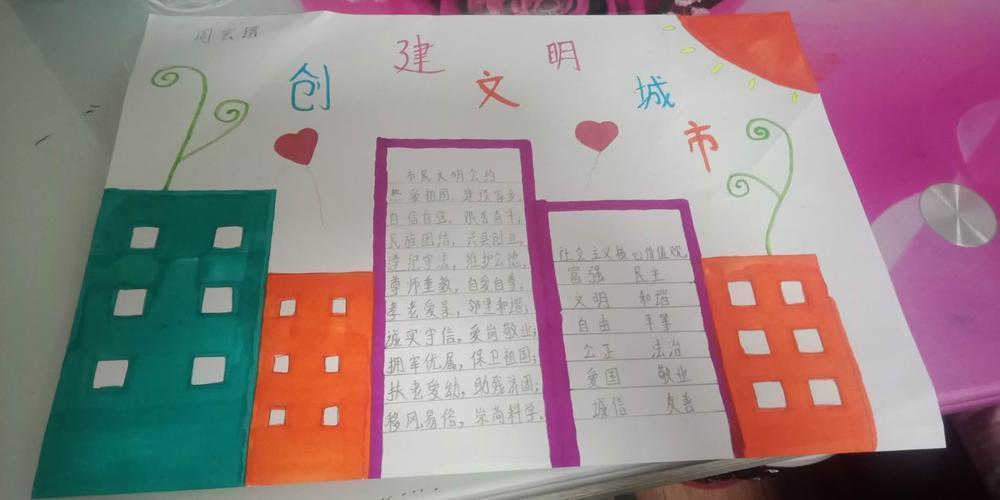 创建文明城市
市民文明公约
热爱祖国，建设家乡，
自信自强，艰苦奋斗；
民族团结，兴县创业，
遵纪守法，维护公德，
尊师重教，自爱自尊；
孝老爱亲，邻里和谐；
诚实守信，爱岗敬业；
拥军优属，保卫祖国；
扶老爱幼，助残济困；
移风易俗，崇尚科学。
社会主义核心价值观，
富强 民主
文明 和谐
自由 平等
公正 法治
爱国 敬业
诚信 友善